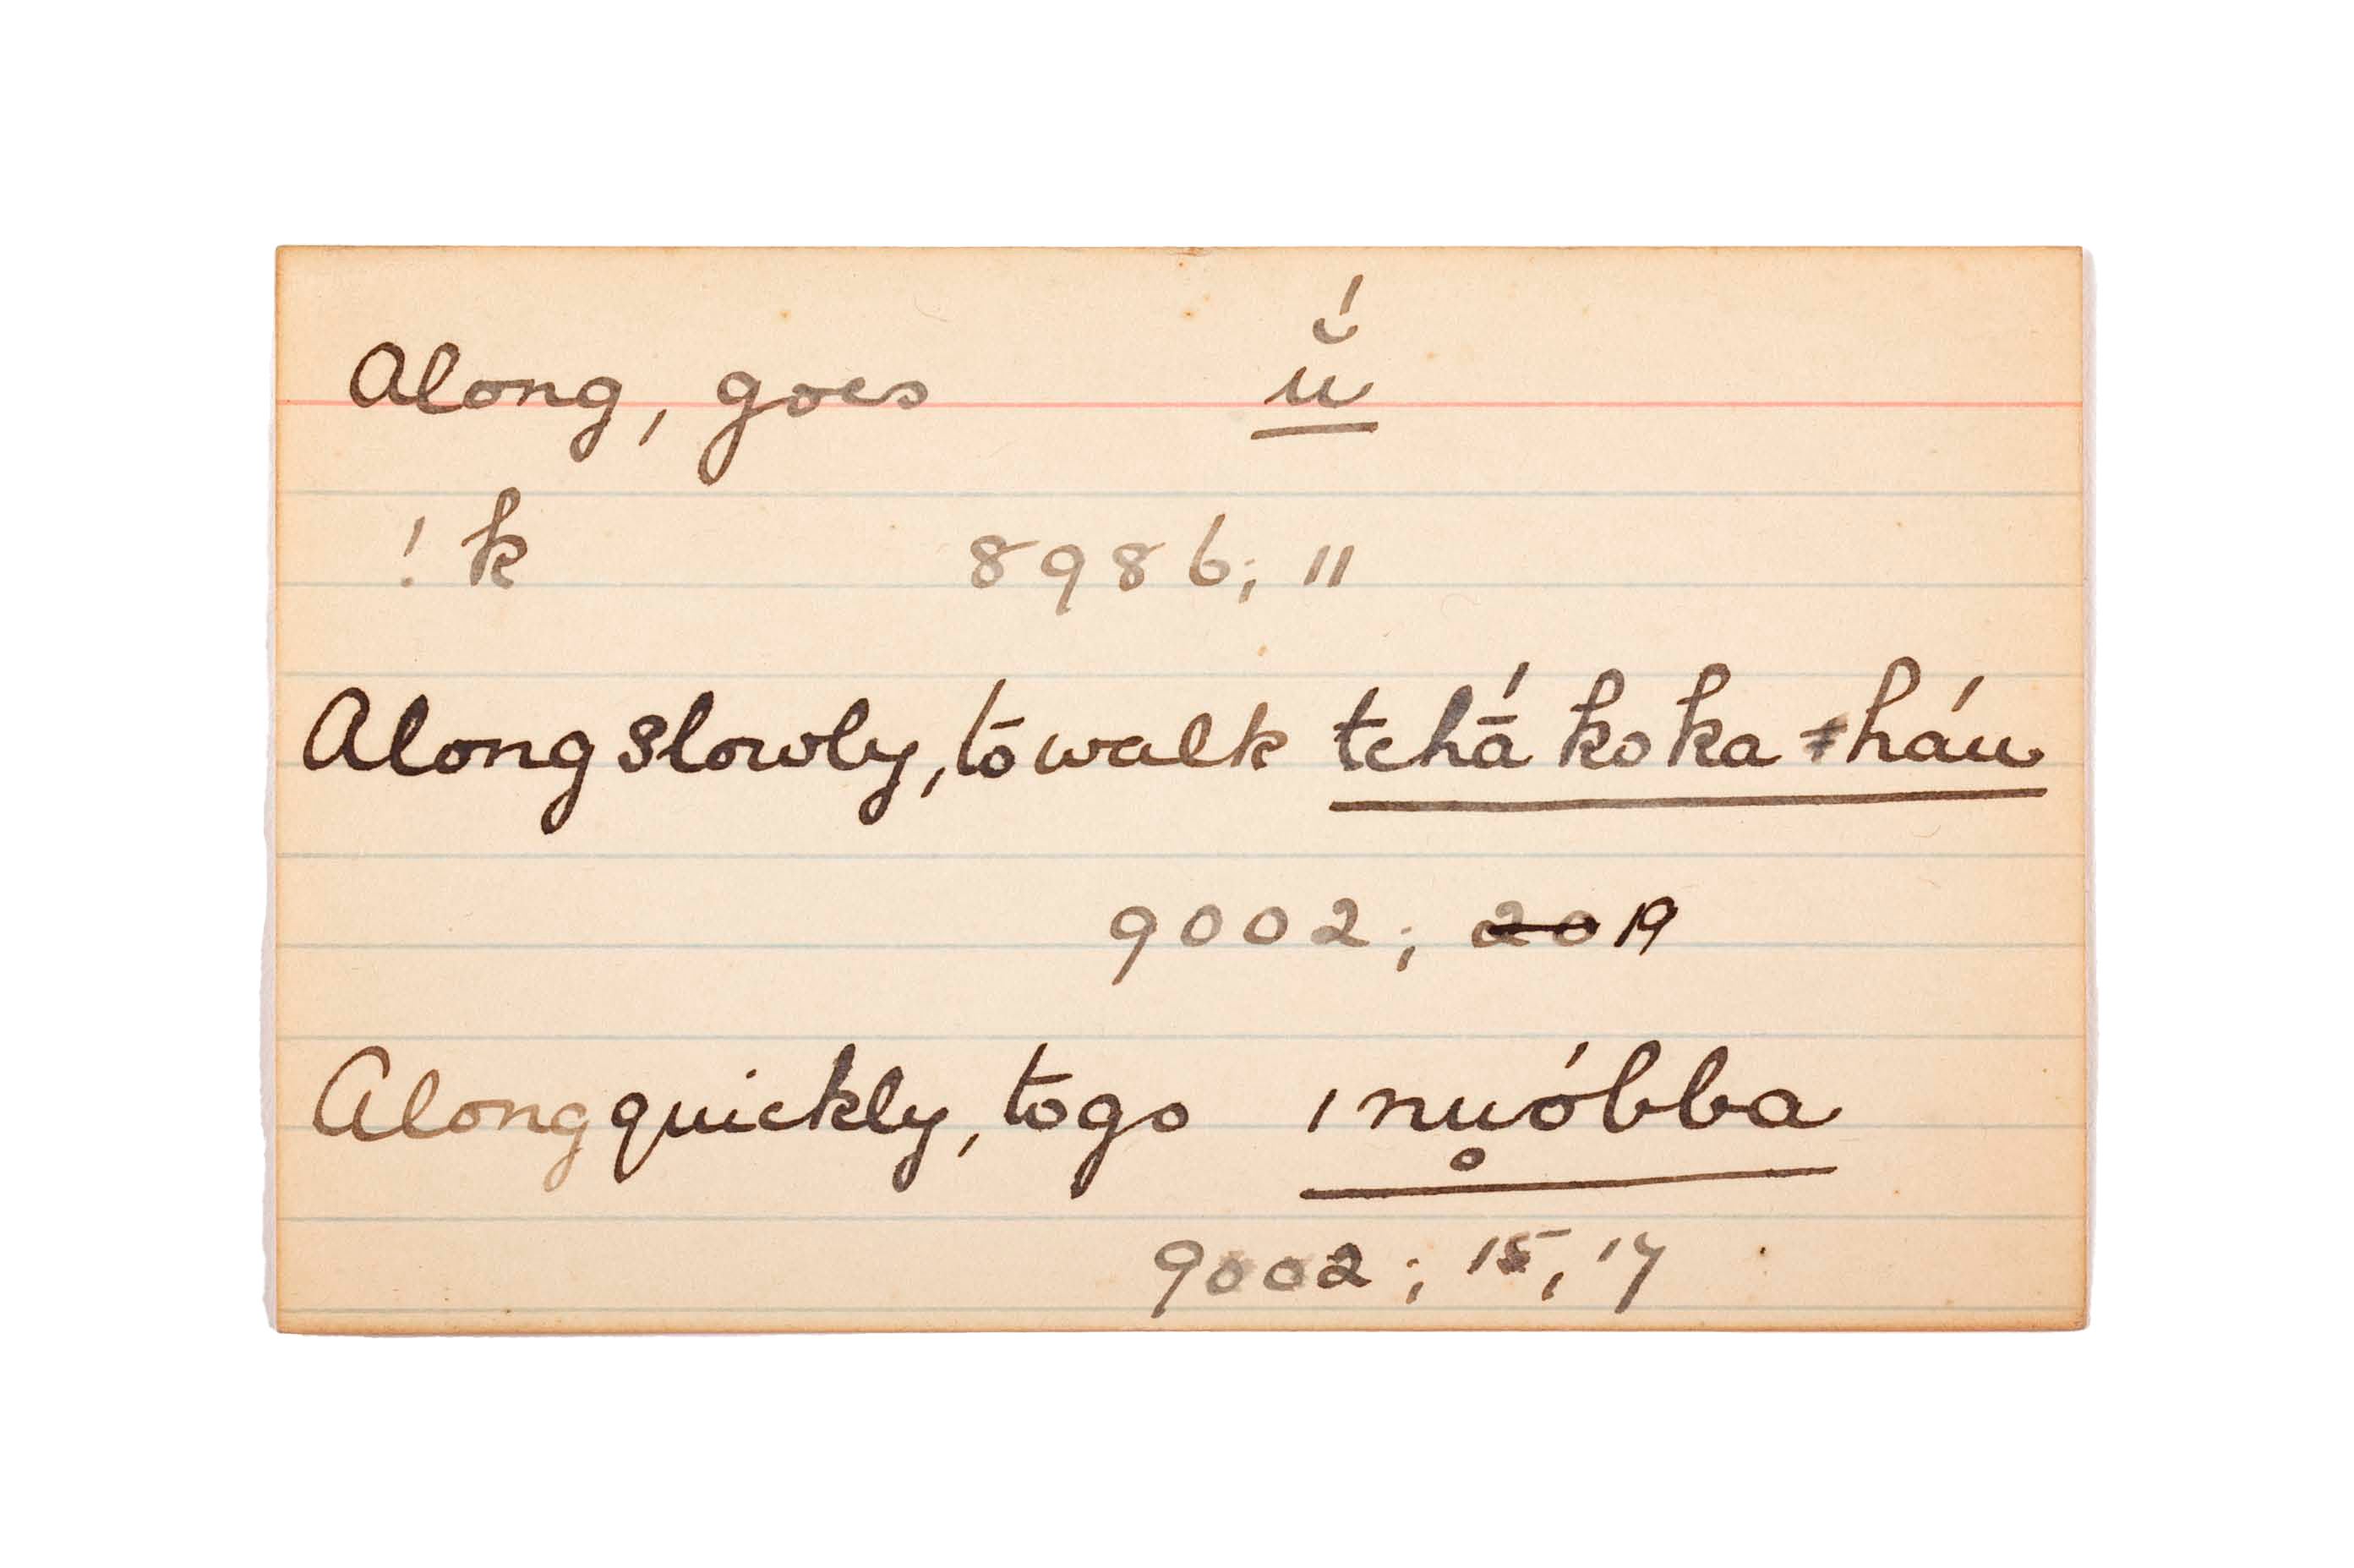 Along, goes ŭ́
! k 8986; 11
Along slowly, to walk tchā́ ko ka = háu
9002; ~~20~~ 19
Along quickly, to go ı nu̥óbba
9002; 15, 17